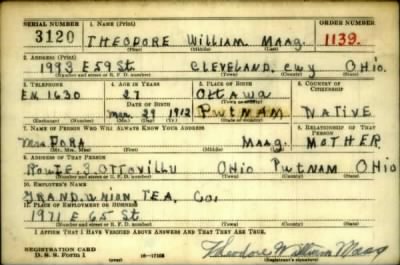 SERIAL NUMBER 1. NAME (Print) ORDER NUMBER
3120 THEODORE William MAAG. 1139.
(First) (Middle) (Last)
2. ADDRESS (Print)
1993 E 59 St. CLEVELAND, CUY OHio.
(Number and street or R. F. D. number) (Town) (County) (State)
3. TELEPHONE 4. AGE IN YEARS 5. PLACE OF BIRTH 6. COUNTRY OF CITIZENSHIP
EN 1630 27 OttaWa
DATE OF BIRTH (Town or county)
Mar. 29 1912 PUTNAM NATIVE
(Exchange) (Number) (Mo.) (Day) (Yr.) (State or country)
7. NAME OF PERSON WHO WILL ALWAYS KNOW YOUR ADDRESS 8. RELATIONSHIP OF THAT PERSON
Mrs DORA MAAG. MOTHER
(Mr., Mrs., Miss) (First) (Middle) (Last)
9. ADDRESS OF THAT PERSON
ROUTE. 3. OTTOVILLE OHio PUTNAM OHio
(Number and street or R. F. D. number) (Town) (County) (State)
10. EMPLOYER'S NAME
GRAND. UNION TEA. Co.
11. PLACE OF EMPLOYMENT OR BUSINESS
1971 E 65 St.
(Number and street or R. F. D. number) (Town) (County) (State)
I AFFIRM THAT I HAVE VERIFIED ABOVE ANSWERS AND THAT THEY ARE TRUE.
REGISTRATION CARD
D. S. S. Form 1 Theodore William Maag
(Registrant's signature)